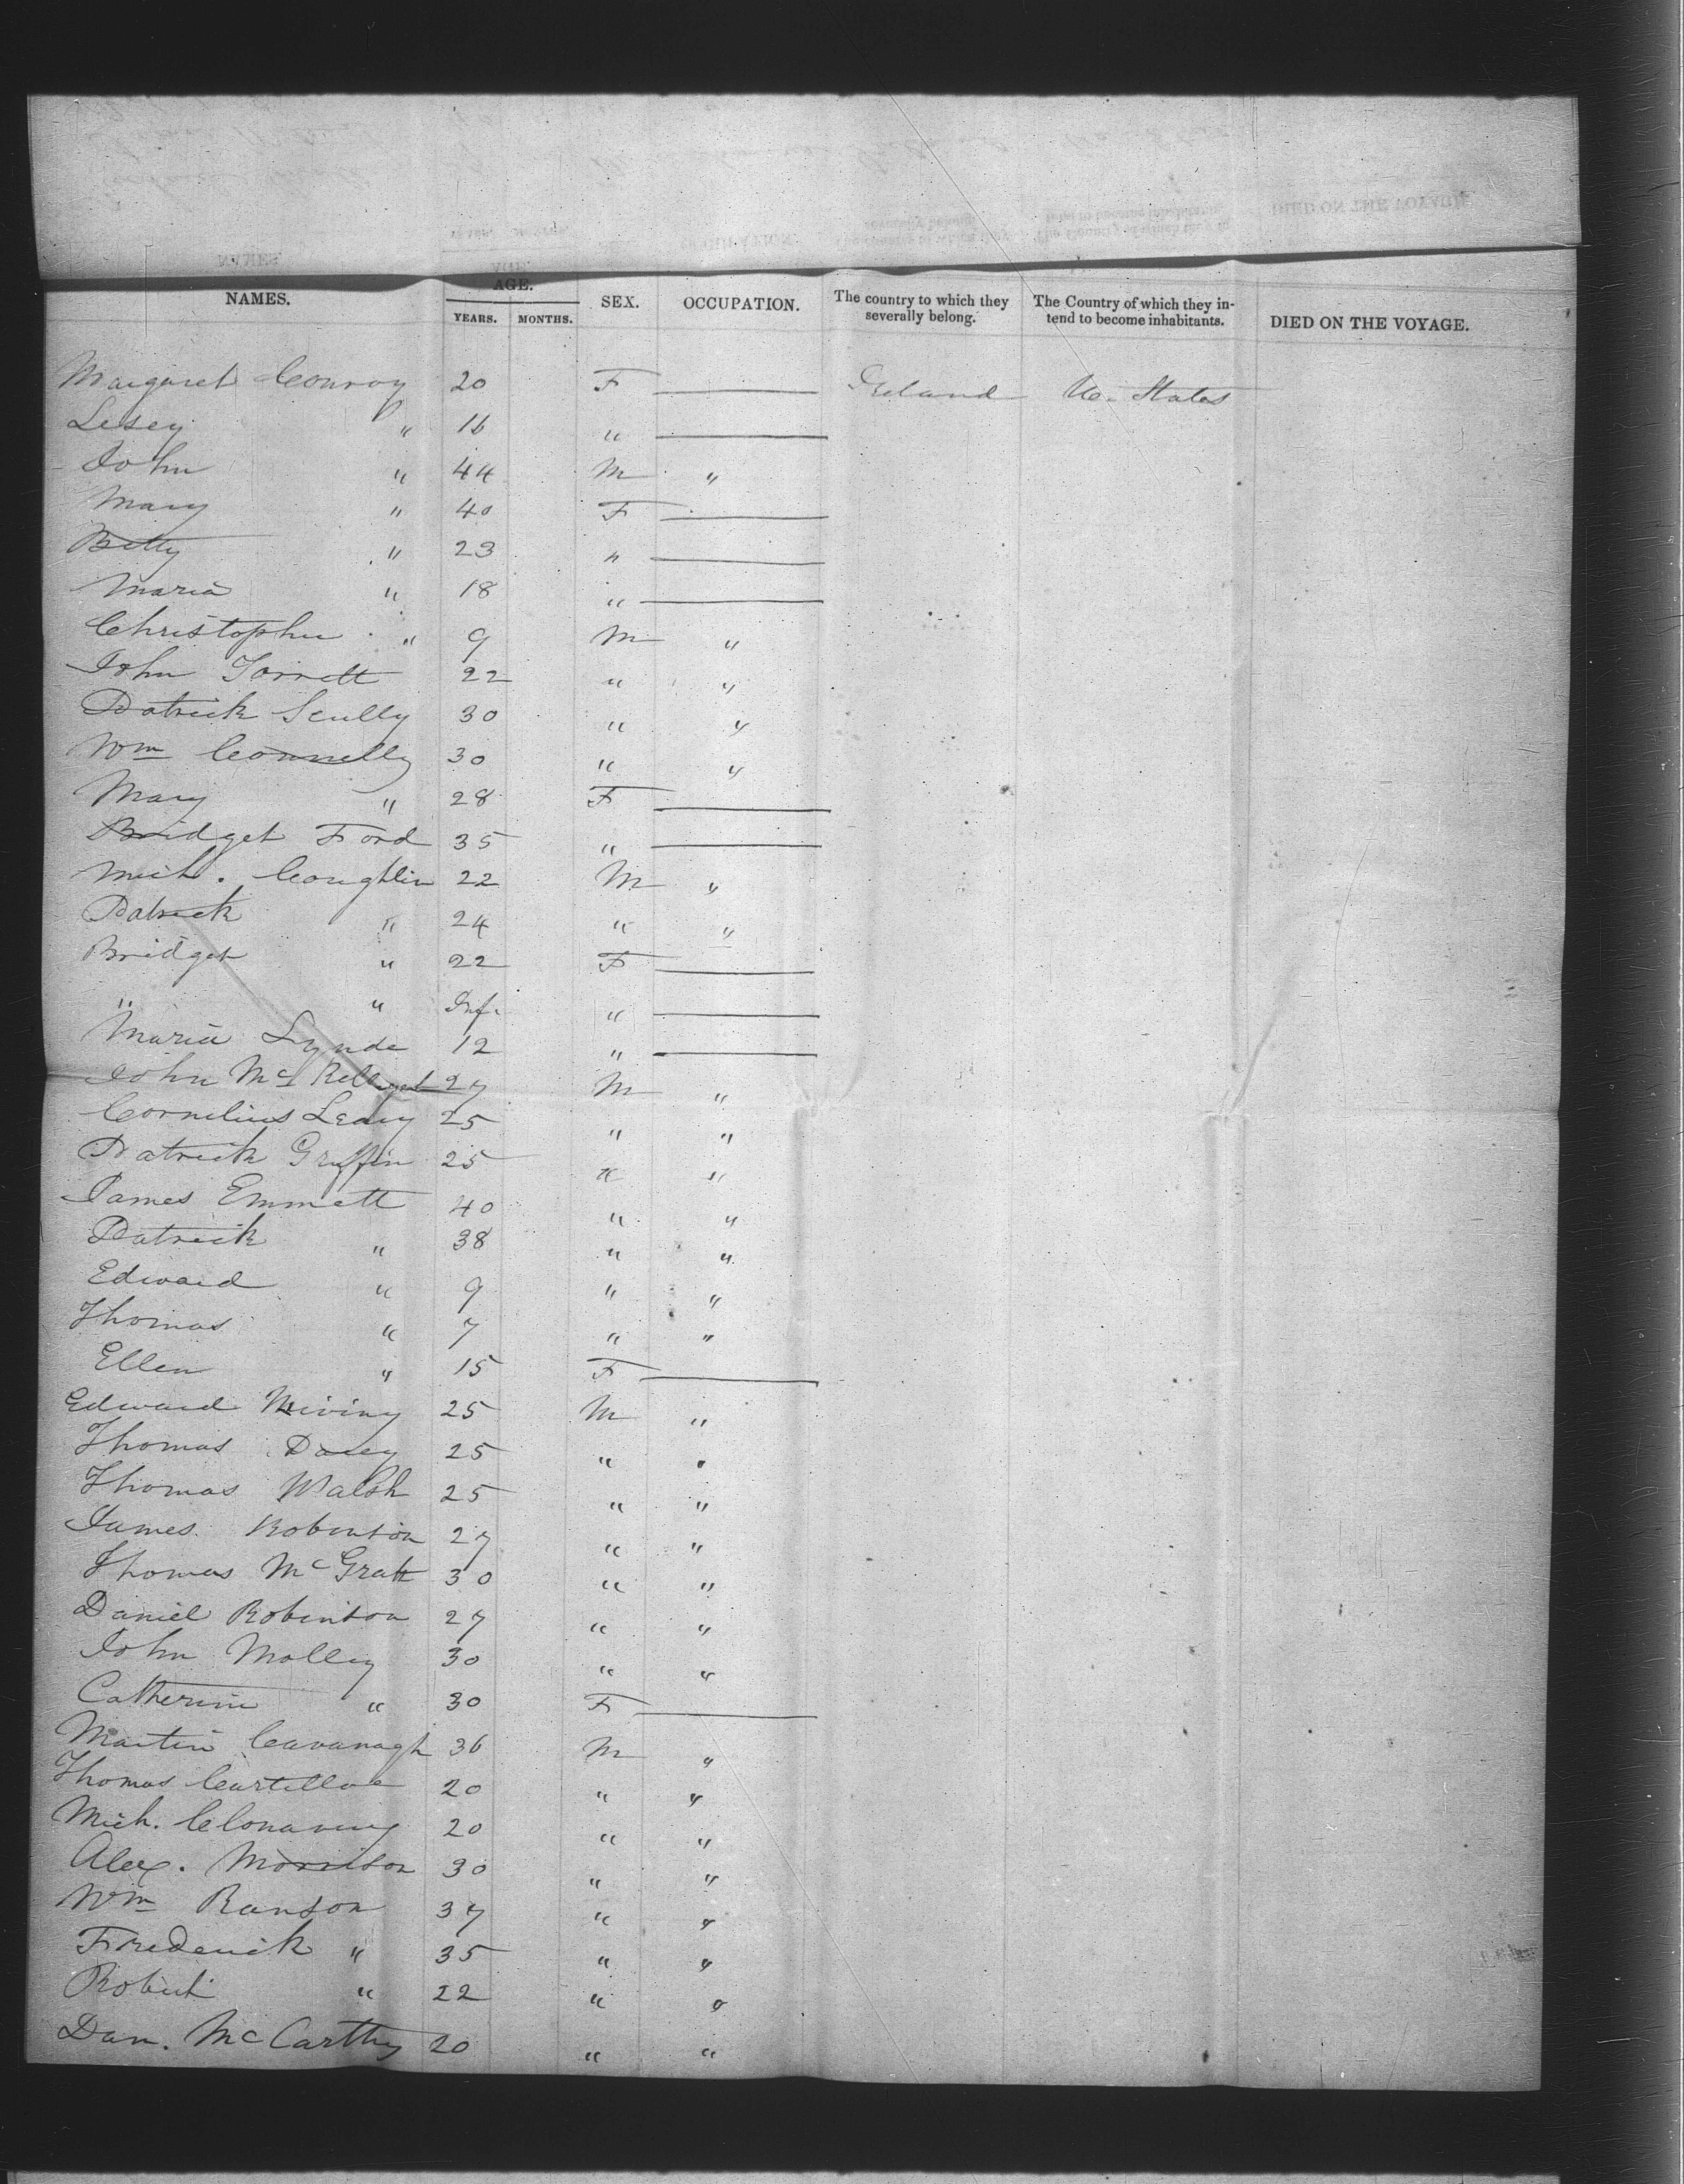 NAMES. AGE. SEX. OCCUPATION. The country to which they severally belong. The Country of which they intend to become inhabitants. DIED ON THE VOYAGE.
YEARS. MONTHS.
Margaret Conroy 20 F — Ireland U. States
Lesey " 16 " —
John " 44 M "
Mary " 40 F —
Betty " 23 " —
Maria " 18 " —
Christopher " 9 M "
John 22 " "
Patrick Scully 30 " "
Wm Connelly 30 " "
Mary " 28 F —
Bridget Ford 35 " —
Mich. Coughlin 22 M "
Patrick " 24 " "
Bridget " 22 F —
" " Inf. " —
Maria Lynde 12 " —
John 27 M "
Cornelius Leary 25 " "
Patrick Griffin 25 " "
James Emmett 40 " "
Patrick " 38 " "
Edward " 9 " "
Thomas " 7 " "
Ellen " 15 F —
Edward 25 M "
Thomas Dacey 25 " "
Thomas Walsh 25 " "
James Robinson 27 " "
Thomas McGrath 30 " "
Daniel Robinson 27 " "
John Molley 30 " "
Catherine " 30 F —
Martin Cavanagh 36 M "
Thomas 20 " "
Mich. 20 " "
Alex. Morrison 30 " "
Wm Ranson 37 " "
Frederick " 35 " "
Robert " 22 " "
Dan. McCarthy 20 " "